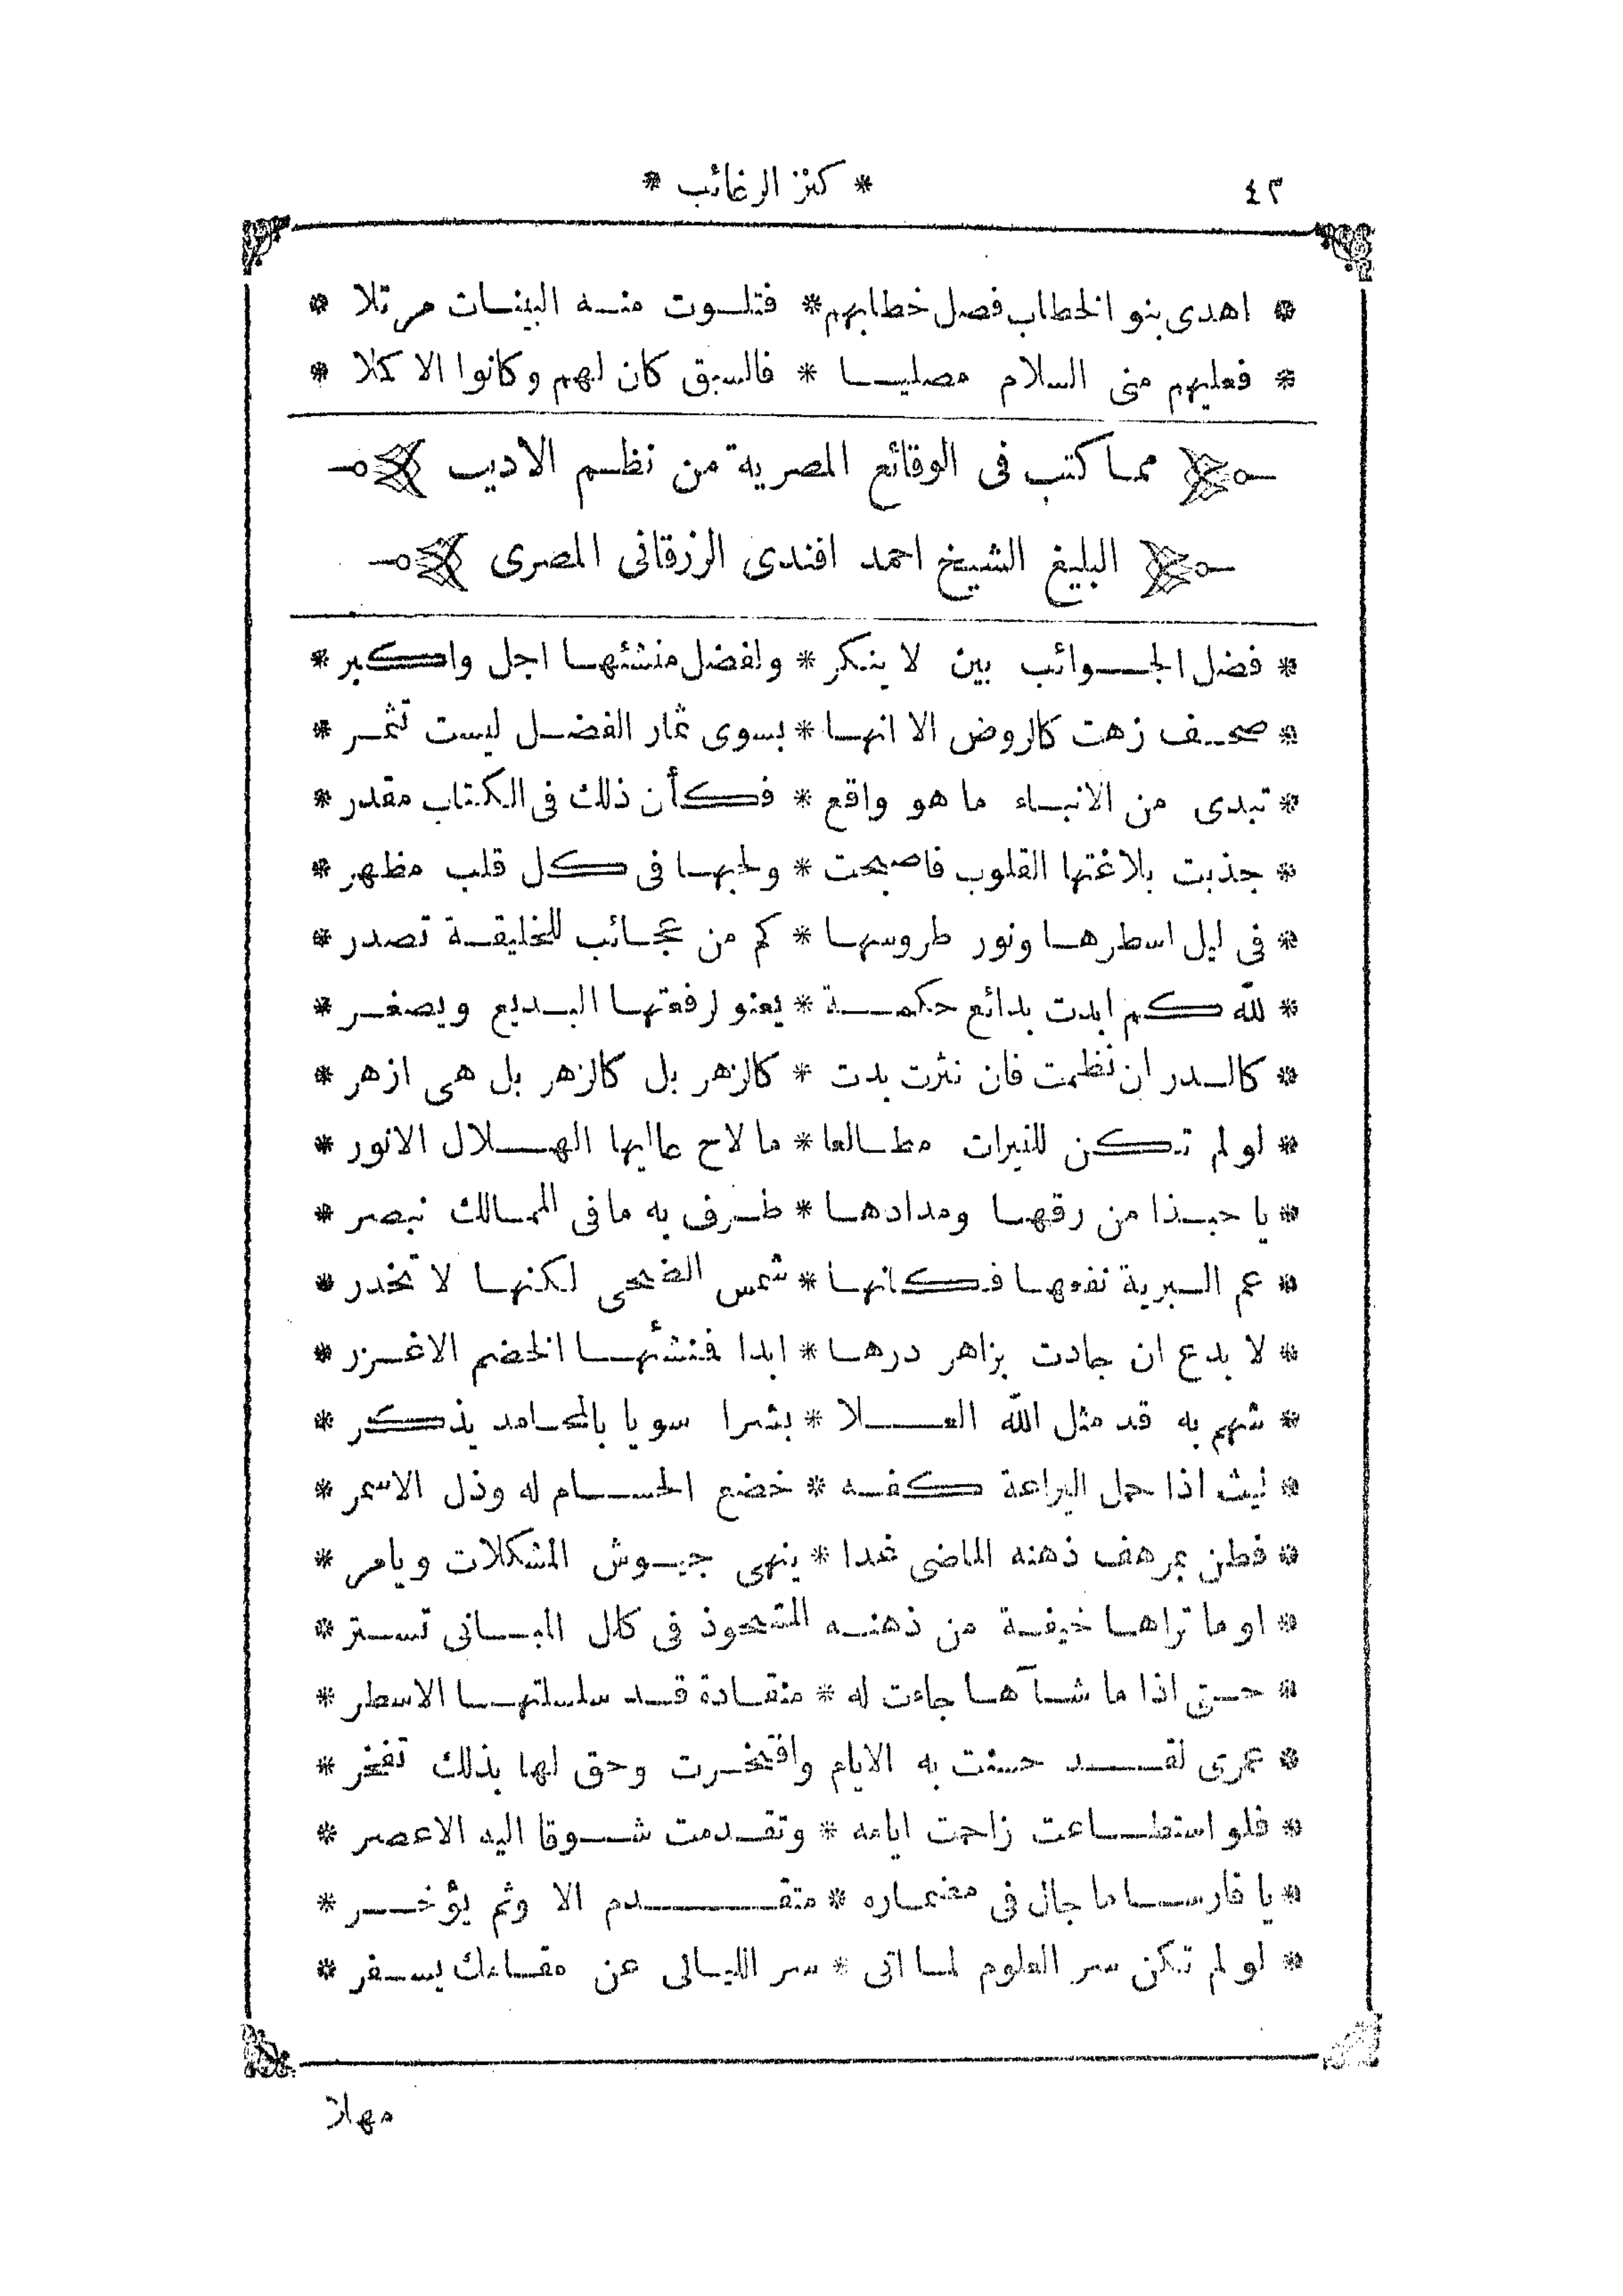 ٤٢ * كنز الرغائب *
* اهدى بنو الخطاب فصل خطابهم * فتلوت منه البينات مرتلا *
* فعليهم منى السلام مصليا * فالسبق كان لهم وكانوا الاكملا *
مما كتب فى الوقائع المصرية من نظم الاديب
البليغ الشيخ احمد افندى الزرقانى المصرى
* فضل الجوائب بين لا ينكر * ولفضل منشئها اجل واكبر *
* صحف زهت كالروض الا انها * بسوى ثمار الفضل ليست تثمر *
* تبدى من الانباء ما هو واقع * فكأن ذلك فى الكتاب مقدر *
* جذبت بلاغتها القلوب فاصبحت * ولحبها فى كل قلب مظهر *
* فى ليل اسطرها ونور طروسها * كم من عجائب للخليقة تصدر *
* لله كم ابدت بدائع حكمة * يعنو لرفعتها البديع ويصغر *
* كالدر ان نظمت فان نثرت بدت * كالزهر بل كالزهر بل هى ازهر *
* لو لم تكن للنيرات مطالعا * ما لاح عاليها الهلال الانور *
* يا حبذا من رقها ومدادها * طرف به ما فى الممالك نبصر *
* عم البرية نفعها فكانها * شمس الضحى لكنها لا تخدر *
* لا بدع ان جادت بزاهر درها * ابدا فمنشئها الخضم الاغزر *
* شهم به قد مثل الله العلا * بشرا سويا بالمحامد يذكر *
* ليث اذا حمل اليراعة كفه * خضع الحسام له وذل الاسمر *
* فطن بمرهف ذهنه الماضى غدا * ينهى جيوش المشكلات ويامر *
* او ما تراها خيفة من ذهنه المشحوذ فى كلل المبانى تستتر *
* حتى اذا ما شآها جاءت له * منقادة قد سلسلتها الاسطر *
* عمرى لقد حسنت به الايام وافتخرت وحق لها بذلك تفخر *
* فلو استطاعت زاحمت ايامه * وتقدمت شوقا اليه الاعصر *
* يا فارسا ما جال فى مضماره * متقدم الا وثم يؤخر *
* لو لم تكن سر العلوم لما اتى * سر الليالى عن مقامك يسفر *
مهلا